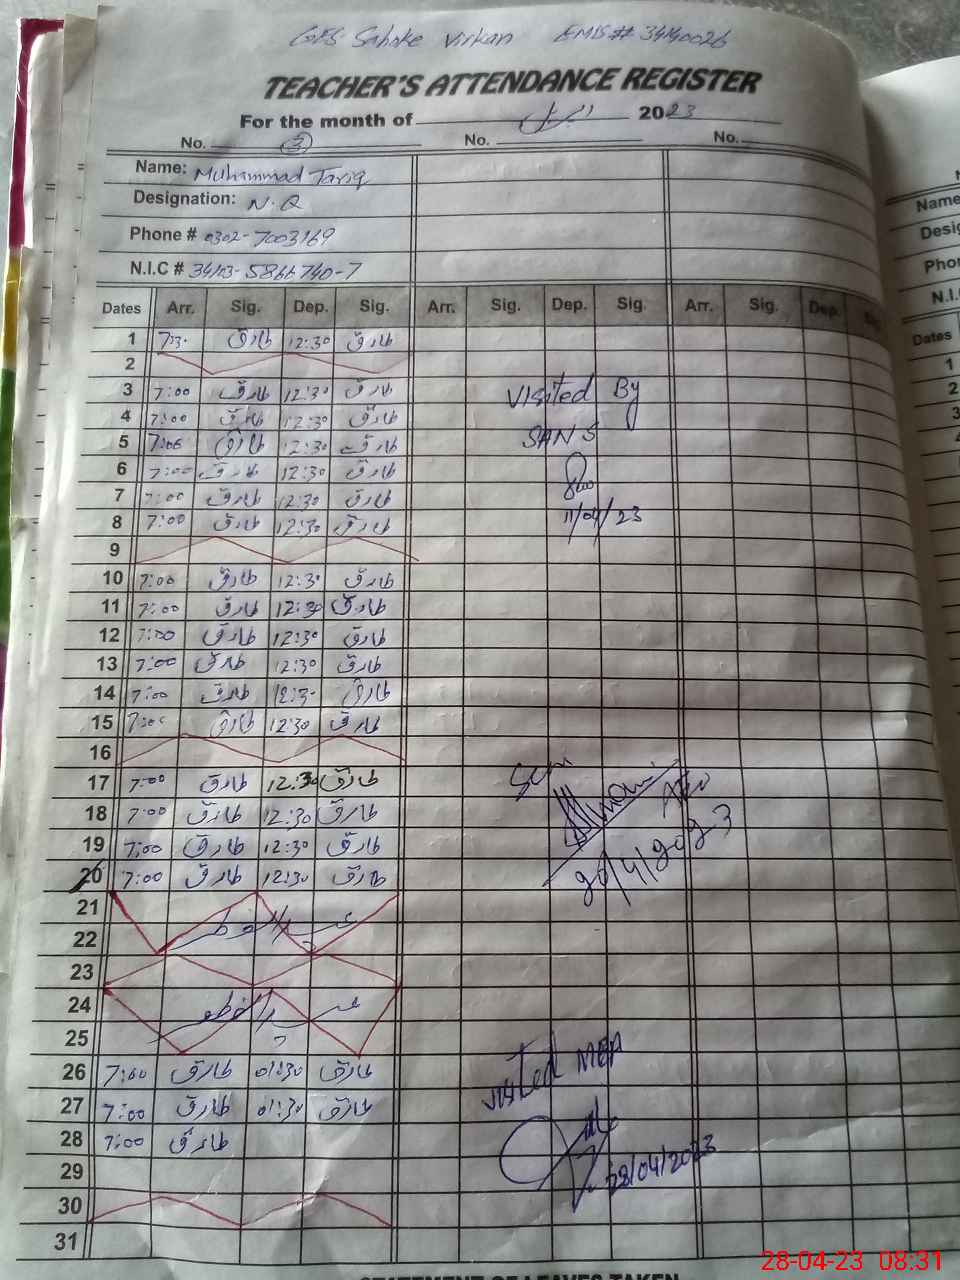 GPS Sahoke Virkan EMIS# 34140026
TEACHER'S ATTENDANCE REGISTER
For the month of اپریل 2023
No. 3 No. No.
Name: Muhammad Tariq
Designation: N.Q
Phone # 0302-7003169
N.I.C # 34103-5866740-7
Dates Arr. Sig. Dep. Sig. Arr. Sig. Dep. Sig. Arr. Sig. Dep. Sig
1 7:30 طارق 12:30 طارق
2
3 7:00 طارق 12:30 طارق Visited By
4 7:00 طارق 12:30 طارق
5 7:00 طارق 12:30 طارق SANS
6 7:00 طارق 12:30 طارق
7 7:00 طارق 12:30 طارق
8 7:00 طارق 12:30 طارق 11/04/23
9
10 7:00 طارق 12:30 طارق
11 7:00 طارق 12:30 طارق
12 7:00 طارق 12:30 طارق
13 7:00 طارق 12:30 طارق
14 7:00 طارق 12:30 طارق
15 7:00 طارق 12:30 طارق
16
17 7:00 طارق 12:30 طارق
18 7:00 طارق 12:30 طارق
19 7:00 طارق 12:30 طارق
20 7:00 طارق 12:30 طارق 20/4/2023
21
عید الفطر
22
23
24 عید الفطر
25
26 7:00 طارق 01:30 طارق Visited MEA
27 7:00 طارق 01:30 طارق
28 7:00 طارق
29 28/04/2023
30
31
STATEMENT OF LEAVES TAKEN
Name
Desig
Pho
N.I.
Dates
1
2
3
28-04-23 08:31